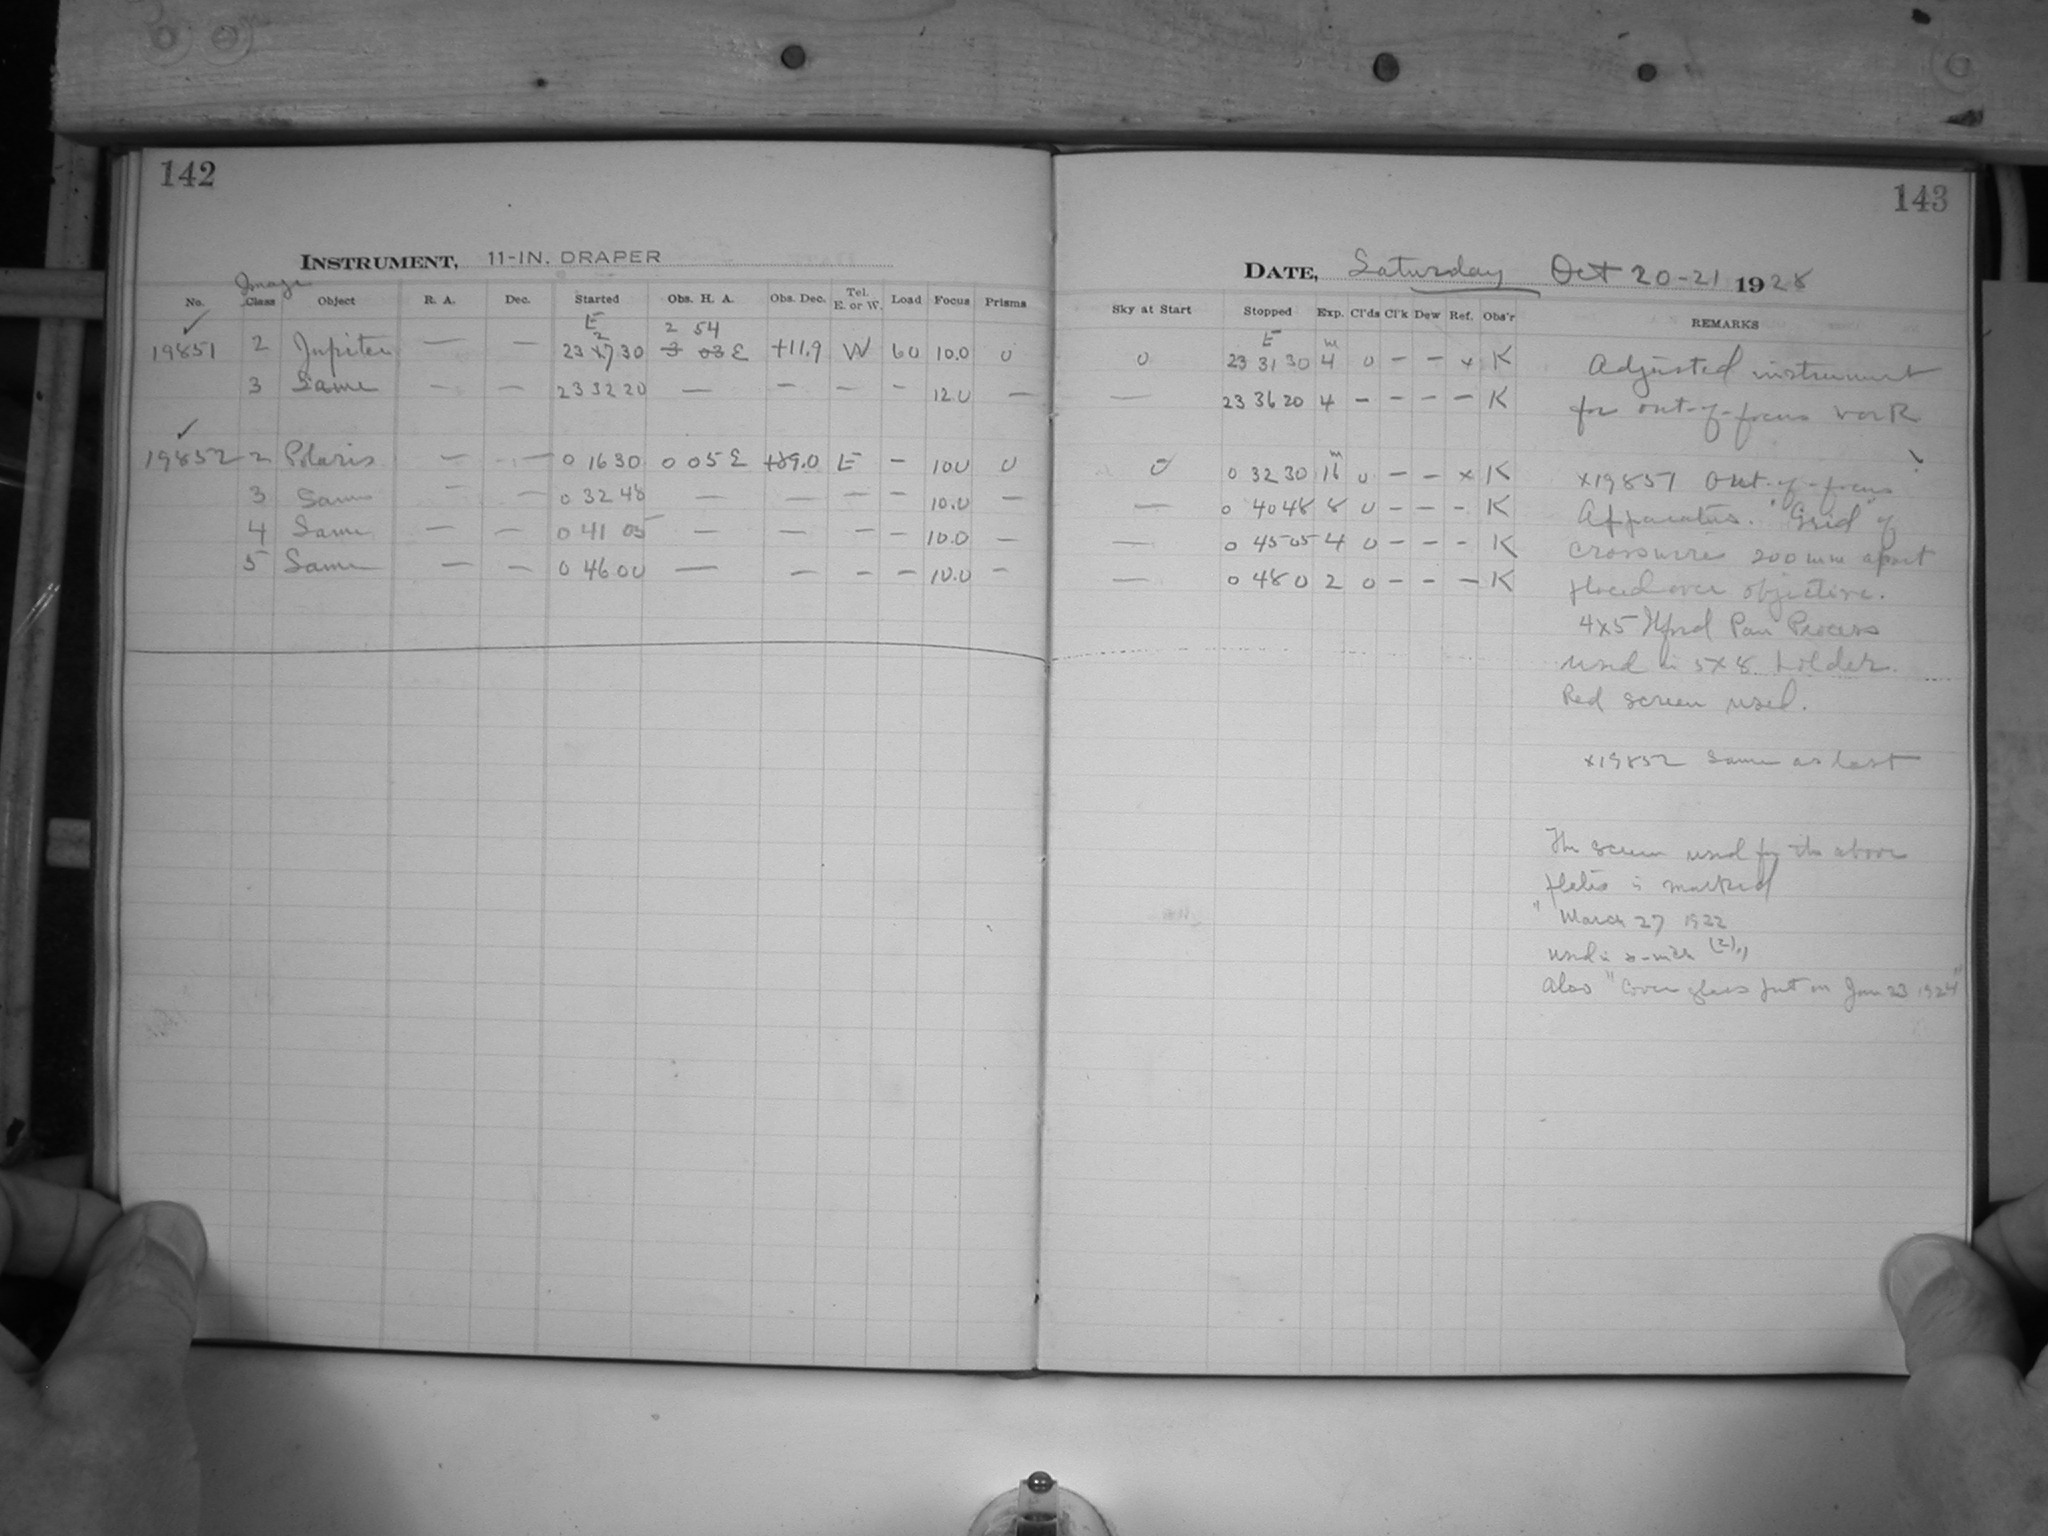 142
INSTRUMENT, 11-IN. DRAPER
Image
No. Class Object R. A. Dec. Started Obs. H. A. Obs. Dec. Tel. E. or W. Load Focus Prisms
E
2 2 54
19851 2 Jupiter — — 23 17 30 3 03 E +11.9 W 60 10.0 0
3 Same — — 23 32 20 — — — — 12.0 —
19852 2 Polaris — — 0 16 30 0 05 E +89.0 E — 10.0 0
3 Same — — 0 32 48 — — — — 10.0 —
4 Same — — 0 41 05 — — — — 10.0 —
5 Same — — 0 46 00 — — — — 10.0 —
143
DATE, Saturday Oct 20-21 1928
Sky at Start Stopped Exp. Cl'ds Cl'k Dew Ref. Obs'r REMARKS
E m
0 23 31 30 4 0 — — x K Adjusted instrument
— 23 36 20 4 — — — — K for out-of-focus work
m
0 0 32 30 16 0 — — x K x19851 Out-of-focus
— 0 40 48 8 0 — — — K Apparatus. "Grid" of
— 0 45 05 4 0 — — — K crosswires 200 mm apart
— 0 48 0 2 0 — — — K placed over objective.
4x5 Ilford Pan Process
used in 5x8 holder.
Red screen used.
x19852 Same as last
The screen used for the above
plates is marked
"March 27 1922
used in (2)"
Also "Cover glass put on Jan 23 1924"